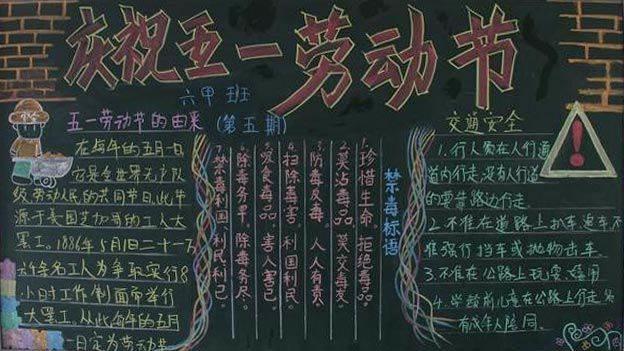 庆祝五一劳动节
六甲班
(第五期)
五一劳动节的由来
在每年的五月一
它是全世界无产队
级,劳动人民的共同节日,此节
源于美国芝加哥的工人大
罢工。1886年5月1日二十一万
六千余名工人为争取实行8
小时工作制而举行
大罢工,从此每年的五月
一日定为劳动节
禁毒标语
1.珍惜生命。拒绝毒品。
2.莫沾毒品,莫交毒友。
3.防毒反毒,人人有责。
4.扫除毒害。利国利民。
5.吸食毒品,害人害己。
6.除毒务早,除毒务尽。
7.禁毒利国,利民,利己。
交通安全
1.行人需在人们道
道内行走,没有人行道
的要靠路边行走
2.不准在道路上扒车,追车,不
准强行挡车或抛物击车。
3.不准在公路上玩耍、嬉闹
4.学龄前儿童在公路上行走
有成年人陪同。